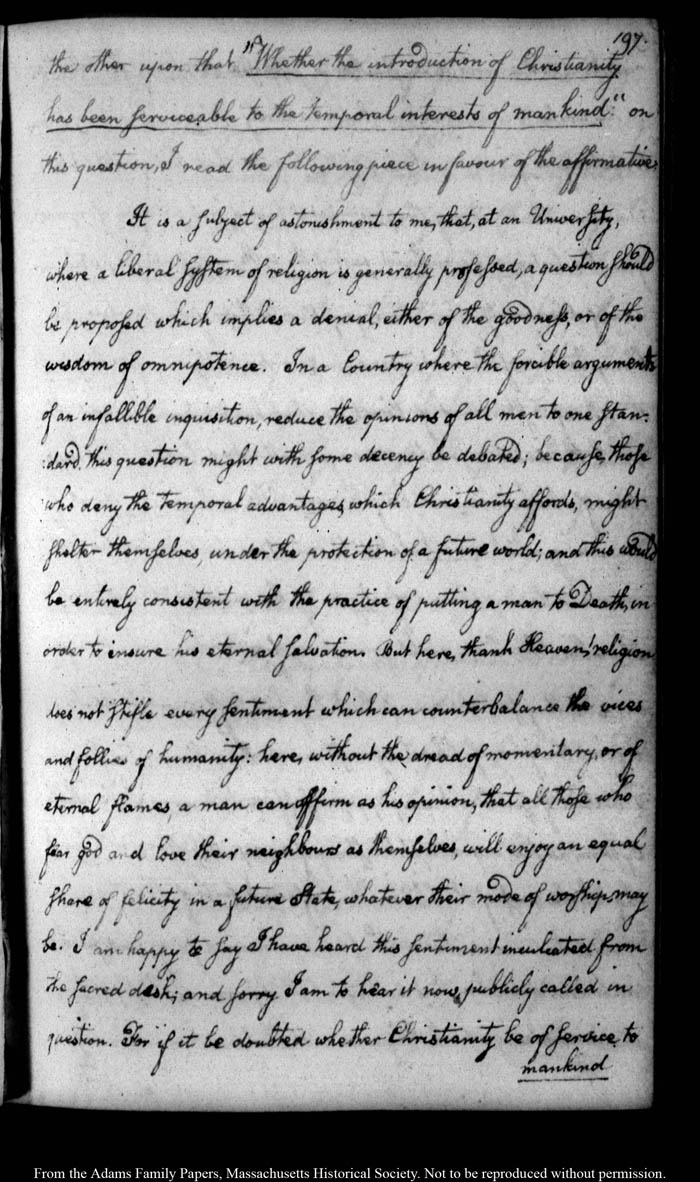 197.
the other upon that "Whether the introduction of Christianity
has been serviceable to the temporal interests of mankind." on
this question, I read the following piece in favour of the affirmative.
It is a subject of astonishment to me, that, at an University,
where a liberal system of religion is generally professed, a question should
be proposed which implies a denial, either of the goodness, or of the
wisdom of omnipotence. In a Country where the forcible arguments
of an infallible inquisition, reduce the opinions of all men to one stan-
:dard, this question might with some decency be debated; because, those
who deny the temporal advantages, which Christianity affords, might
shelter themselves, under the protection of a future world; and this would
be entirely consistent with the practice of putting a man to Death, in
order to ensure his eternal salvation. But here, thank Heaven! religion
does not stifle every sentiment which can counterbalance the vices
and follies of humanity: here, without the dread of momentary, or of
eternal flames, a man can affirm as his opinion, that all those who
fear god and love their neighbours as themselves, will enjoy an equal
share of felicity in a future State, whatever their mode of worship, may
be. I am happy to say I have heard this sentiment inculcated from
the sacred desk; and sorry I am to hear it now, publicly called in
question. For if it be doubted whether Christianity be of service, to
mankind
From the Adams Family Papers, Massachusetts Historical Society. Not to be reproduced without permission.